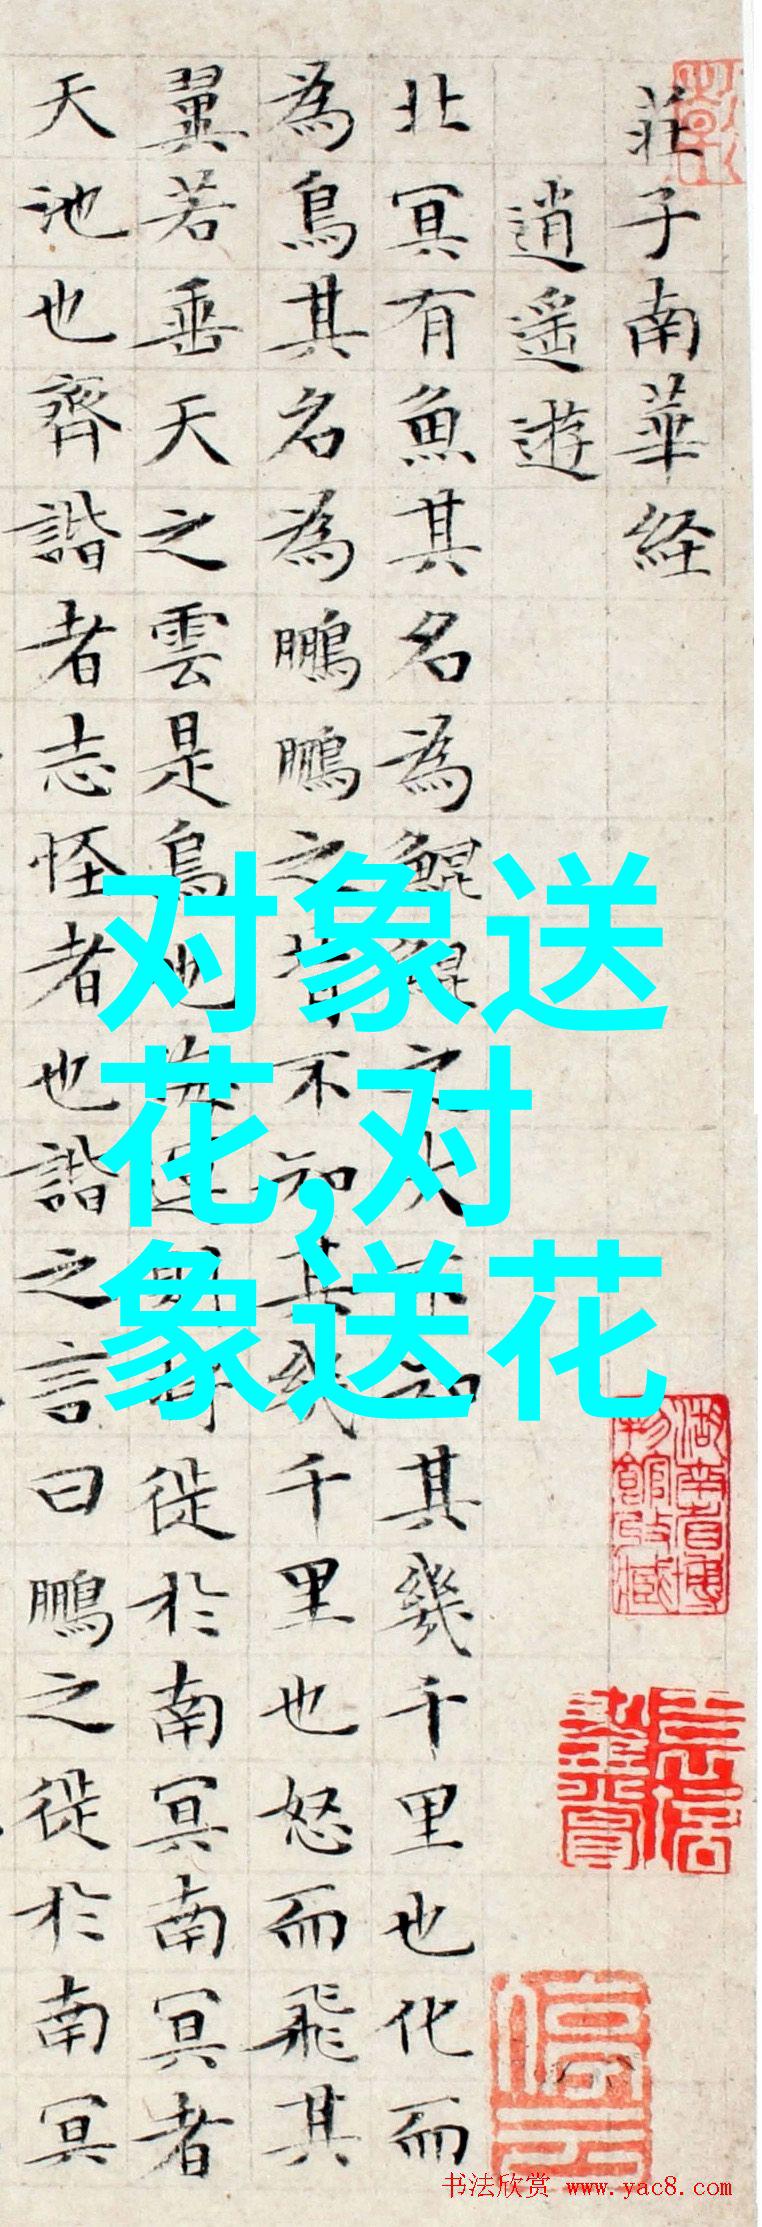 莊子南華経
逍遥遊
北冥有魚其名為鯤鯤之大不知其幾千里也化而
為鳥其名為鵬鵬之背不知其幾千里也怒而飛其
翼若垂天之雲是鳥也海運則將徙於南冥南冥者
天池也齊諧者志怪者也諧之言曰鵬之徙於南冥
对象送
花,对
象送花
湖南省博
物館收藏
停云
书法欣赏 www.yac8.com